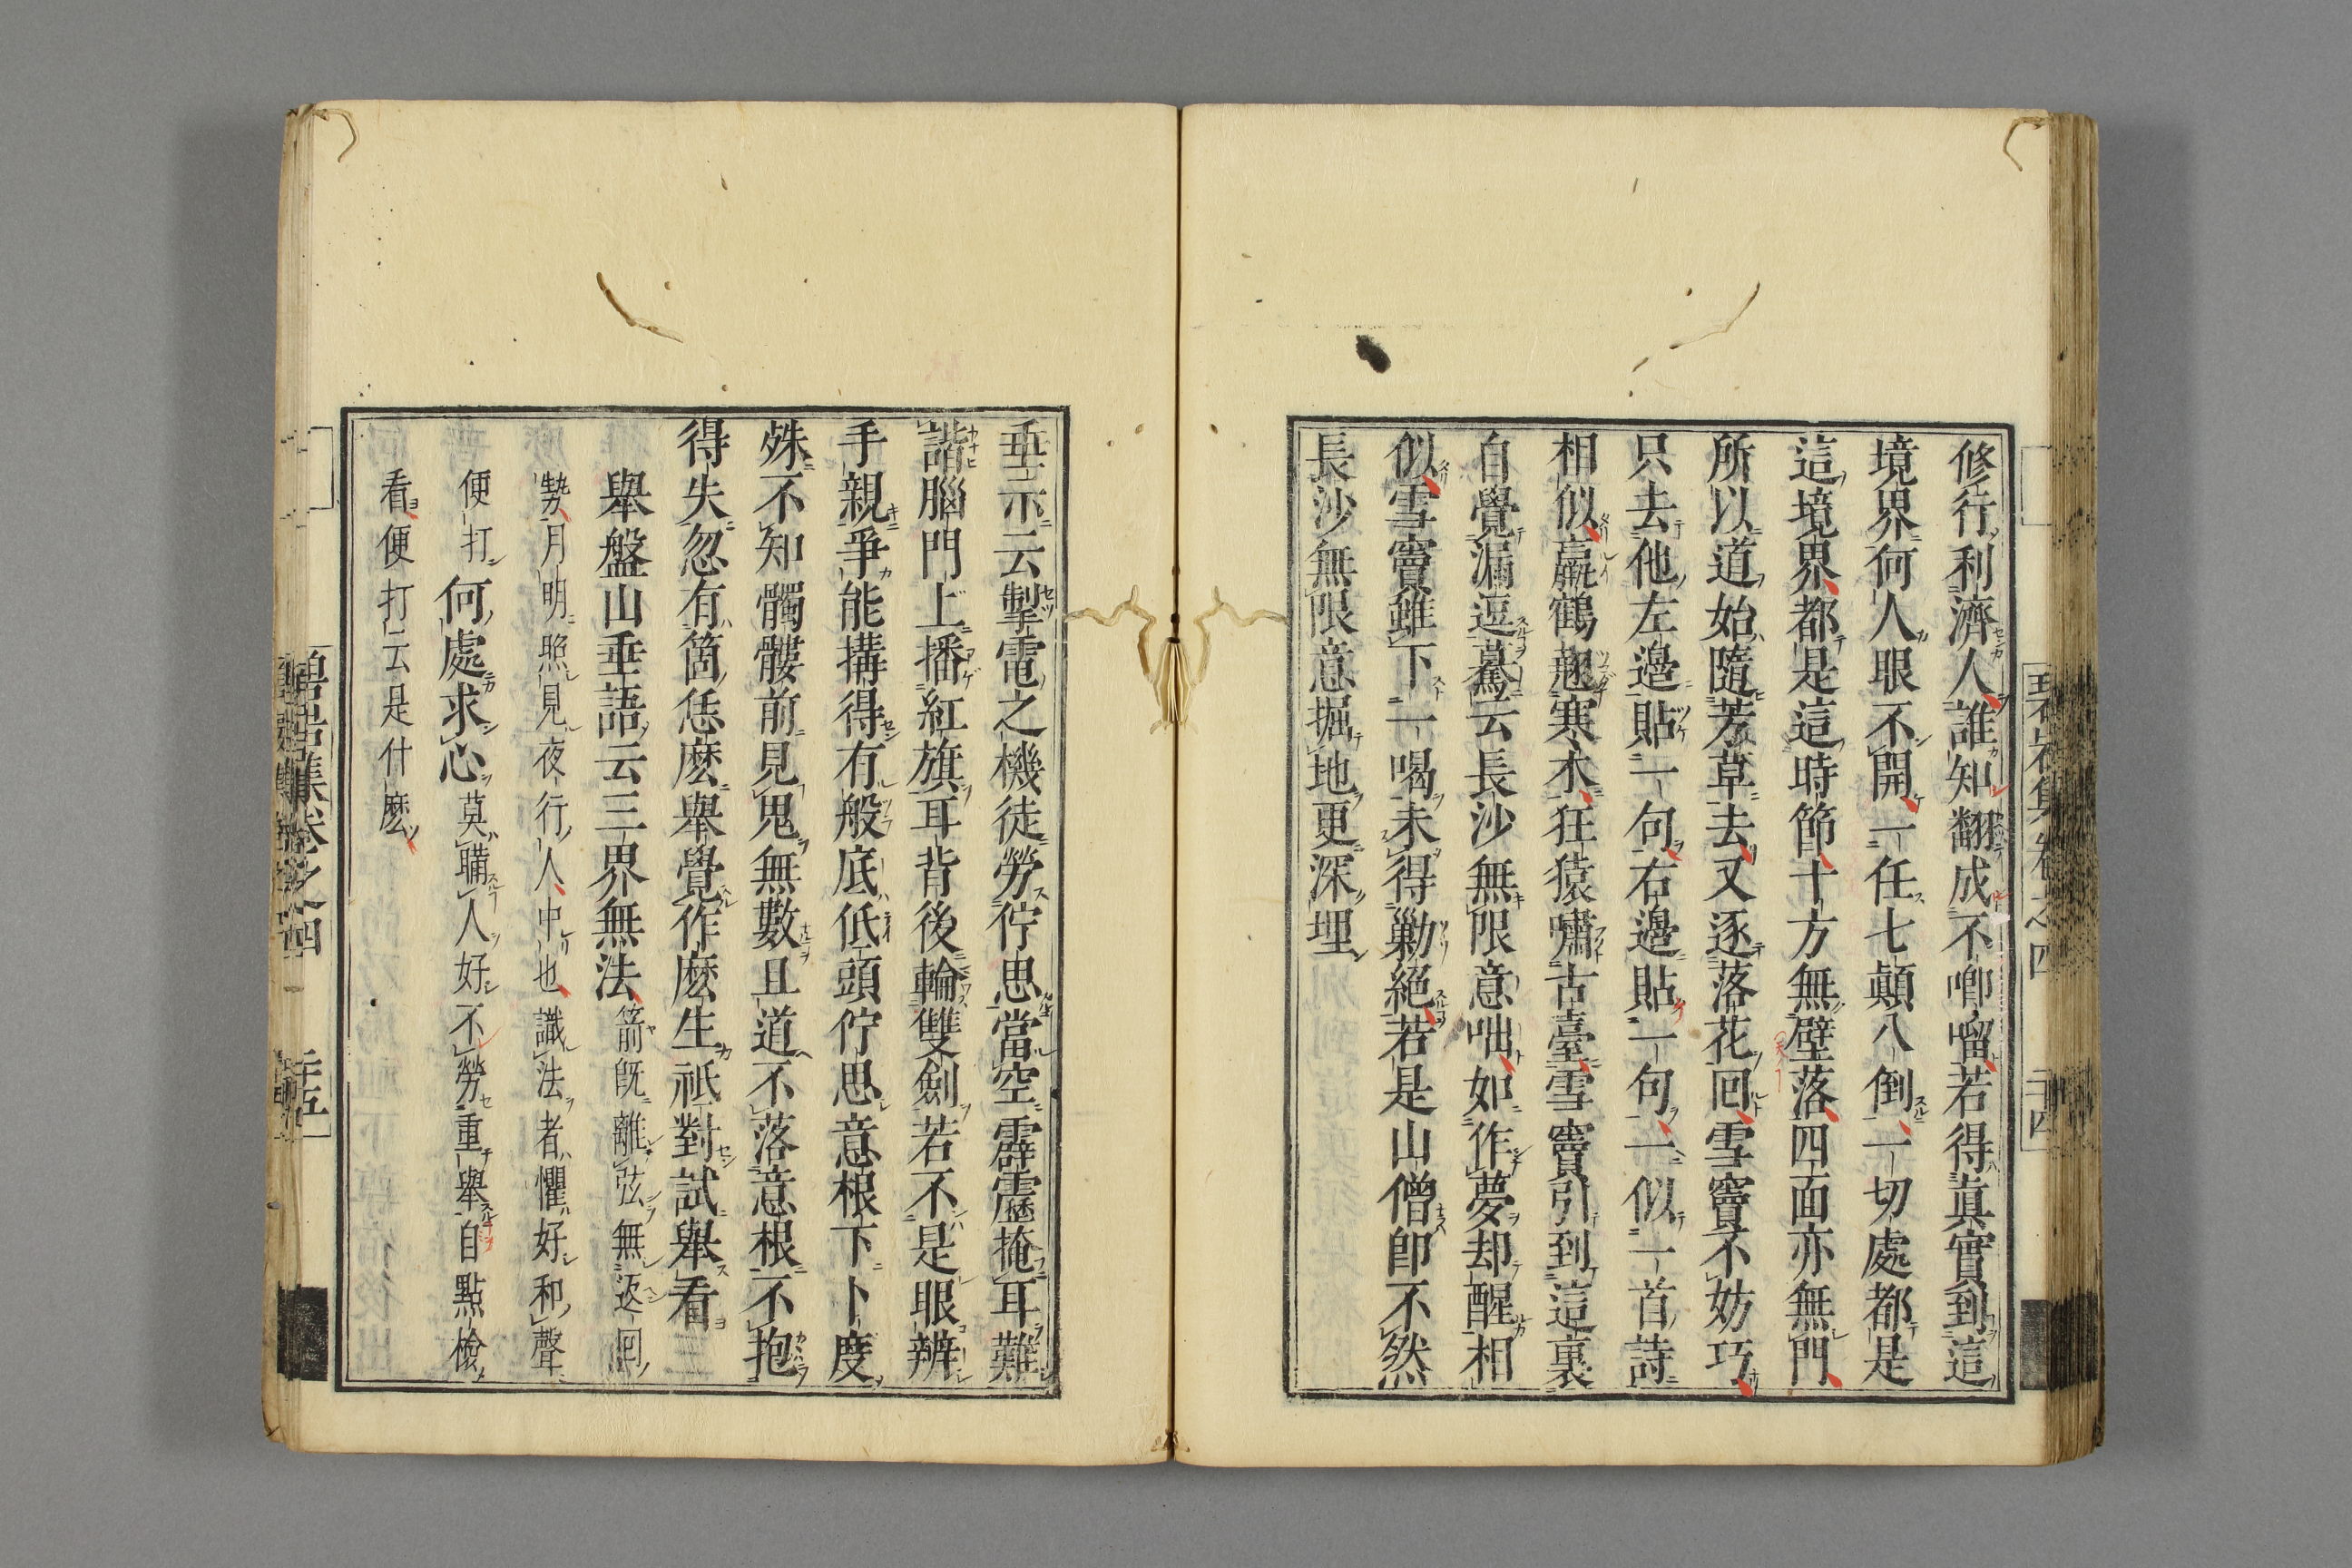 修行利濟人誰知翻成不唧𠺕若得眞實到這
境界何人眼不開一任七顚八倒一切處都是
這境界都是這時節十方無壁落四面亦無門
所以道始隨芳草去又逐落花回雪竇不妨巧
只去他左邊貼一句右邊貼一句一似一首詩
相似羸鶴翹寒木狂猿嘯古臺雪竇引到這裏
自覺漏逗驀云長沙無限意咄如作夢却醒相
似雪竇雖下一喝未得勦絕若是山僧卽不然
長沙無限意掘地更深埋
碧岩集卷之四 二十四
垂示云掣電之機徒勞佇思當空霹靂掩耳難
諧腦門上播紅旗耳背後輪雙劍若不是眼辨
手親爭能搆得有般底低頭佇思意根下卜度
殊不知髑髏前見鬼無數且道不落意根不抱
得失忽有箇恁麽擧覺作麽生祇對試擧看
擧盤山垂語云三界無法箭旣離弦無返回
勢月明照見夜行人中也識法者懼好和聲
便打何處求心莫瞞人好不勞重擧自點檢
看便打云是什麽
碧岩集卷之四 二十五